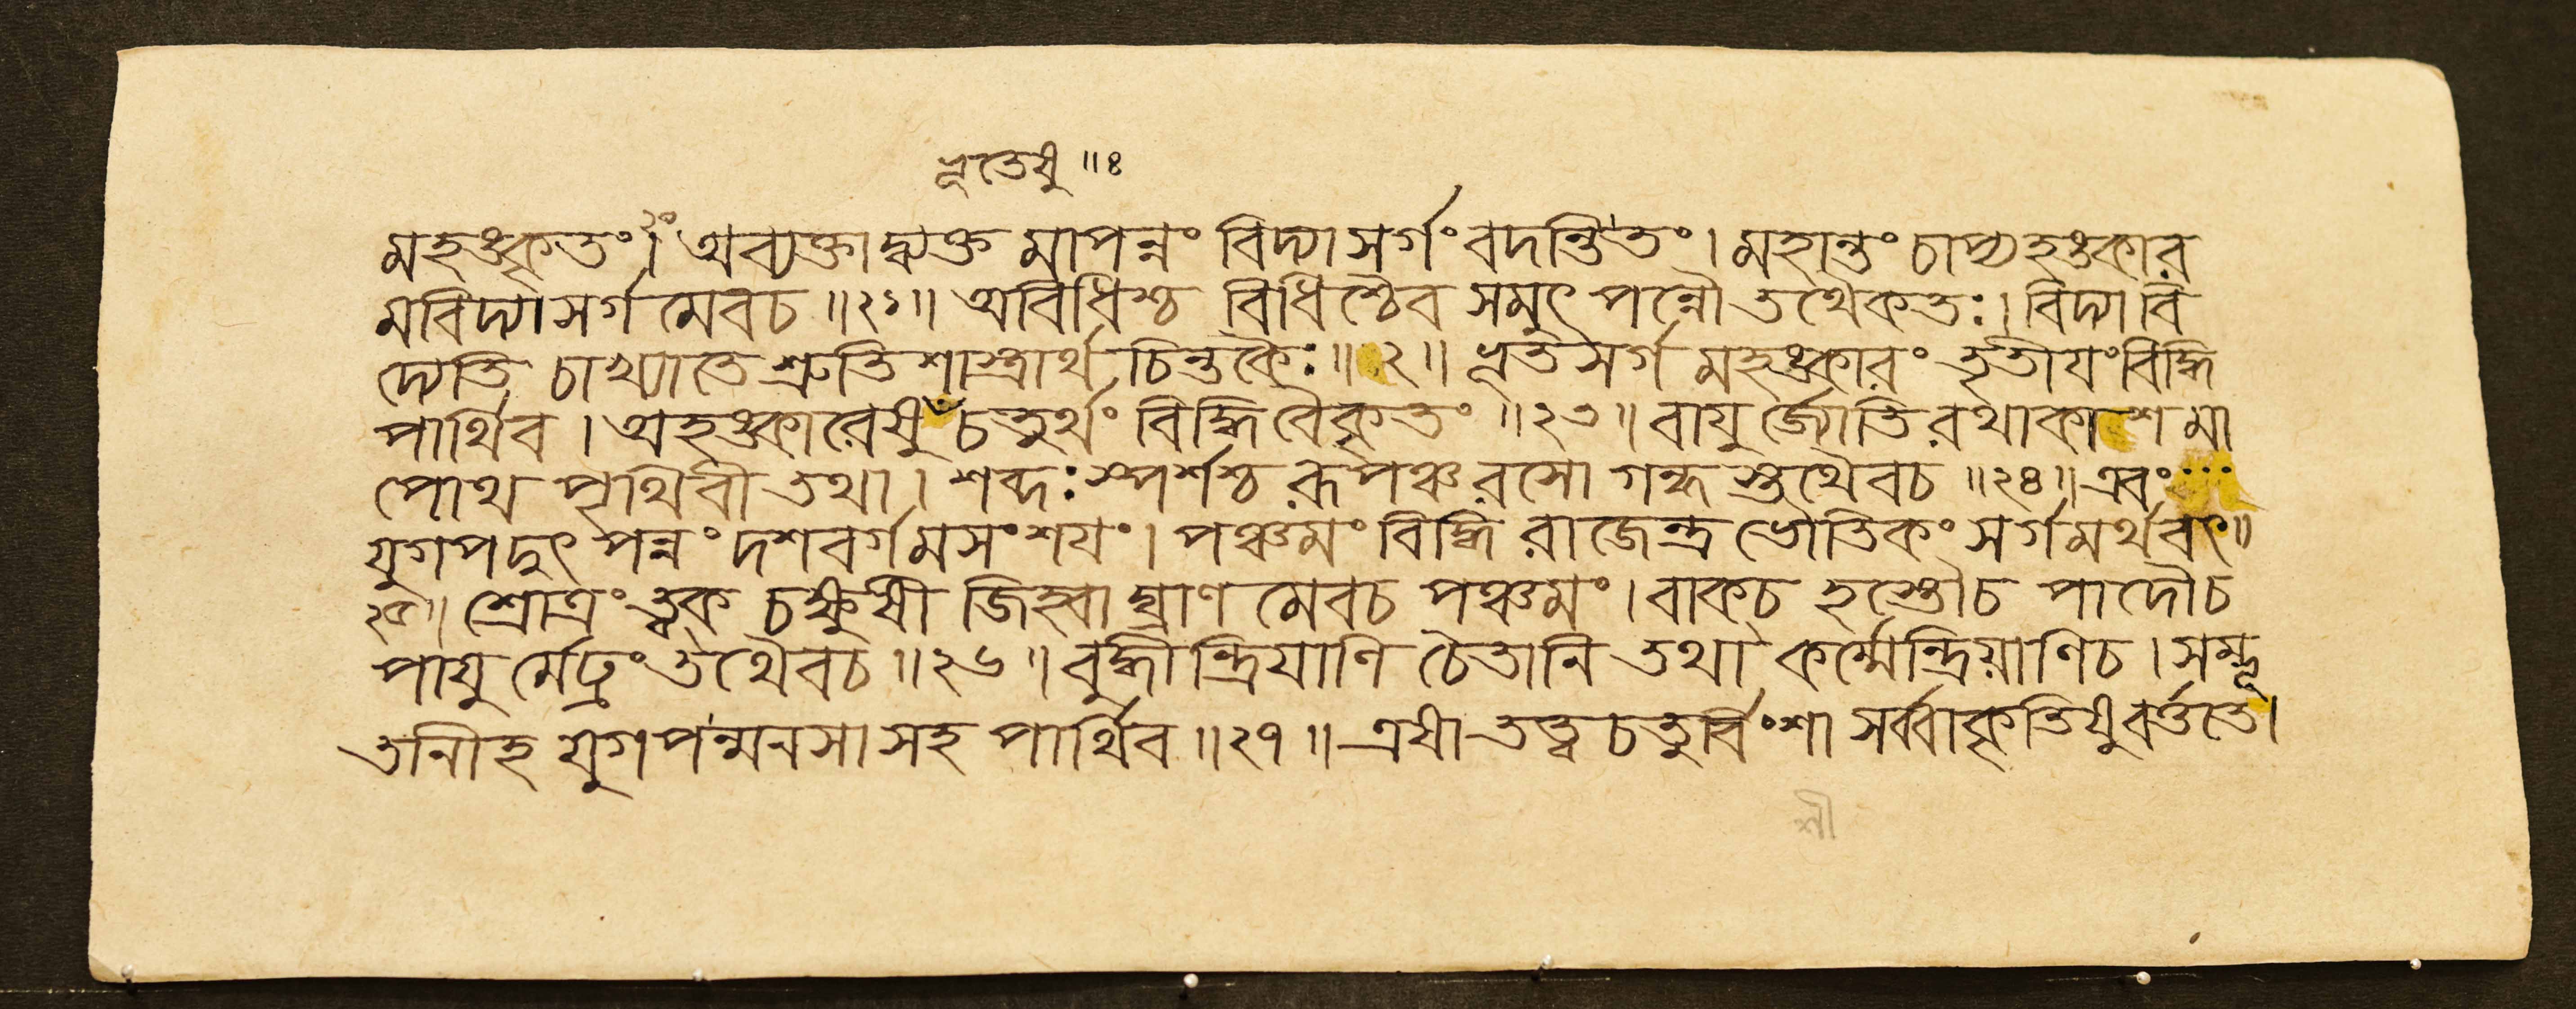 ভূতেষু ॥ ৪
মহঙ্কৃতং । অব্যক্তাদ্ব্যক্ত মাপন্নং বিদ্যা সর্গং বদন্তি তং । মহান্তং চাপ্যহঙ্কার
মবিদ্যা সর্গ মেবচ ॥ ২১ ॥ অবিধিশ্চ বিধিশ্চৈব সমুৎ পন্নৌ তথৈকতঃ । বিদ্যাবি
দ্যেতি চাখ্যাতে শ্রুতি শাস্ত্রার্থ চিন্তকৈঃ ॥ ২২ ॥ ভূত সর্গ মহঙ্কারং তৃতীযং বিদ্ধি
পার্থিব । অহঙ্কারেষু চতুর্থং বিদ্ধি বৈকৃতং ॥ ২৩ ॥ বাযু র্জ্যোতি রথাকাশ মা
পোথ পৃথিবী তথা । শব্দঃ স্পর্শশ্চ রূপঞ্চ রসো গন্ধ স্তথৈবচ ॥ ২৪ ॥ এবং
যুগপদুৎ পন্নং দশবর্গ মসং শযং । পঞ্চমং বিদ্ধি রাজেন্দ্র ভৌতিকং সর্গ মর্থবৎ ॥
২৫ ॥ শ্রোত্রং ত্বক চক্ষুষী জিহ্বা ঘ্রাণ মেবচ পঞ্চমং । বাকচ হস্তৌচ পাদৌচ
পাযু র্মেঢ্রং তথৈবচ ॥ ২৬ ॥ বুদ্ধীন্দ্রিযাণি চৈতানি তথা কর্ম্মেন্দ্রিয়াণিচ । সম্ভূ
তানীহ যুগপন্মনসা সহ পার্থিব ॥ ২৭ ॥ এষা তত্ত্ব চতুর্বিংশা সর্ব্বাকৃতিষু বর্ত্ততে ।
শ্রী